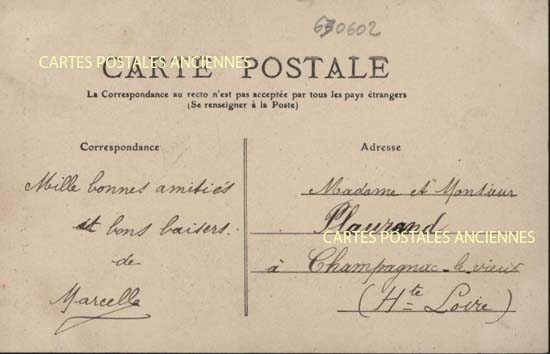 630602
CARTES POSTALES ANCIENNES
CARTE POSTALE
La Correspondance au recto n'est pas acceptée par tous les pays étrangers
(Se renseigner à la Poste)
Correspondance
Mille bonnes amitiés
et bons baisers.
de
Marcelle
Adresse
Madame et Monsieur
Plaurand
CARTES POSTALES ANCIENNES
à Champagnac-le vieux
(Hte Loire)